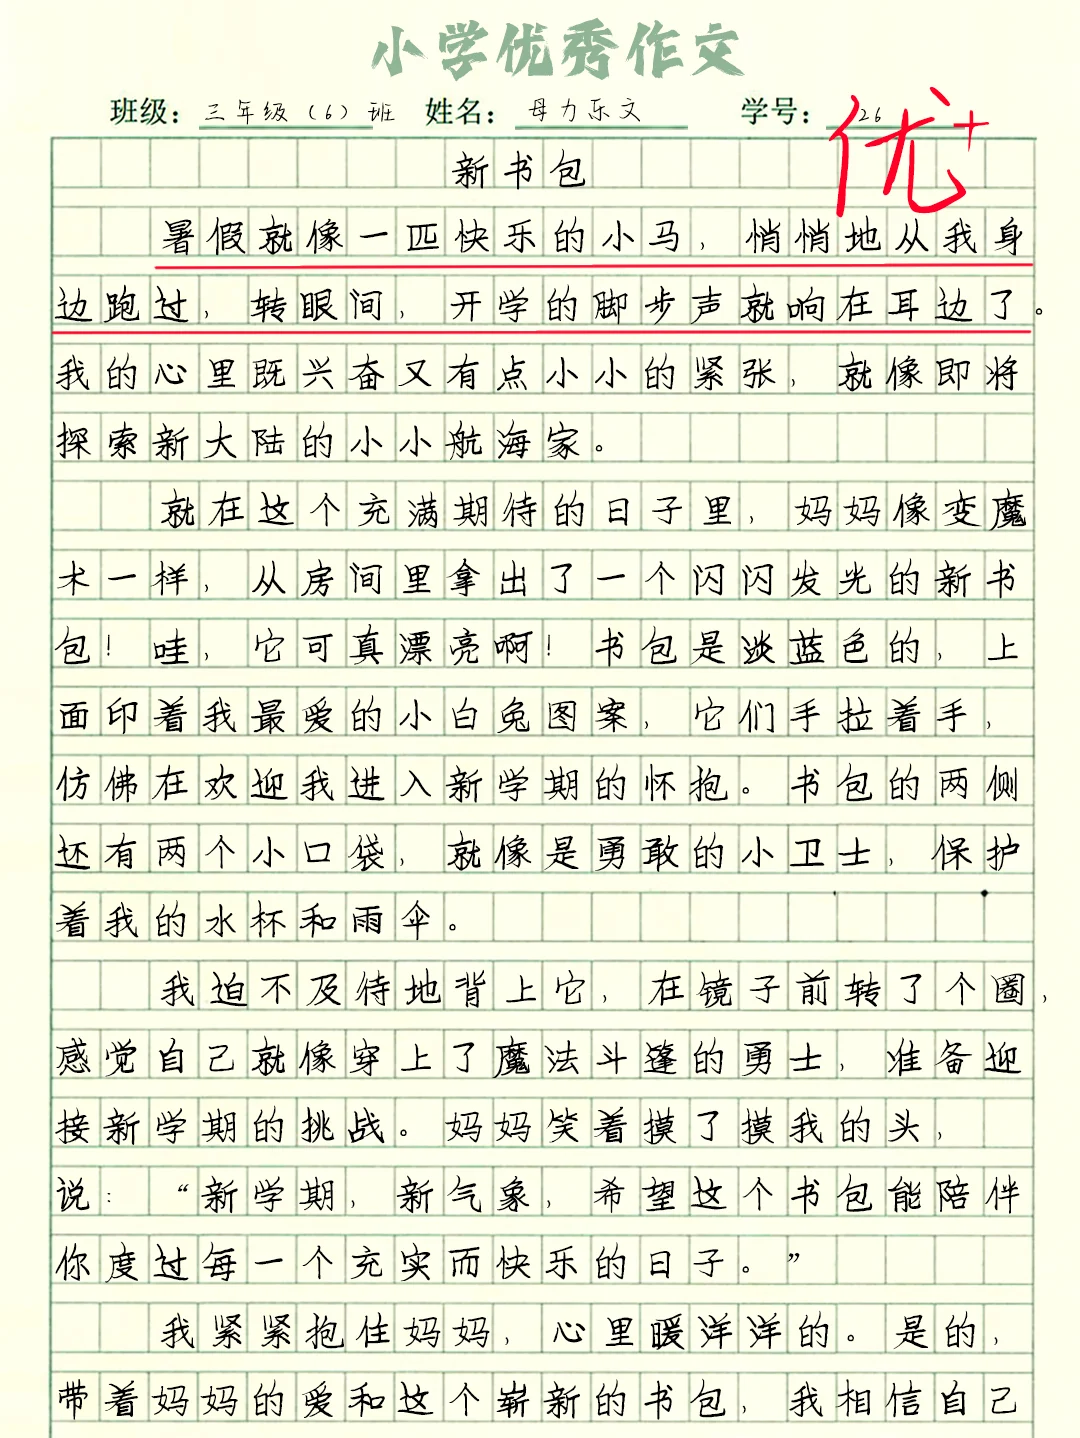 小学优秀作文
班级：三年级（6）班 姓名：母力乐文 学号：26
优+
新书包
暑假就像一匹快乐的小马，悄悄地从我身
边跑过，转眼间，开学的脚步声就响在耳边了。
我的心里既兴奋又有点小小的紧张，就像即将
探索新大陆的小小航海家。
就在这个充满期待的日子里，妈妈像变魔
术一样，从房间里拿出了一个闪闪发光的新书
包！哇，它可真漂亮啊！书包是淡蓝色的，上
面印着我最爱的小白兔图案，它们手拉着手，
仿佛在欢迎我进入新学期的怀抱。书包的两侧
还有两个小口袋，就像是勇敢的小卫士，保护
着我的水杯和雨伞。
我迫不及待地背上它，在镜子前转了个圈，
感觉自己就像穿上了魔法斗篷的勇士，准备迎
接新学期的挑战。妈妈笑着摸了摸我的头，
说：“新学期，新气象，希望这个书包能陪伴
你度过每一个充实而快乐的日子。”
我紧紧抱住妈妈，心里暖洋洋的。是的，
带着妈妈的爱和这个崭新的书包，我相信自己